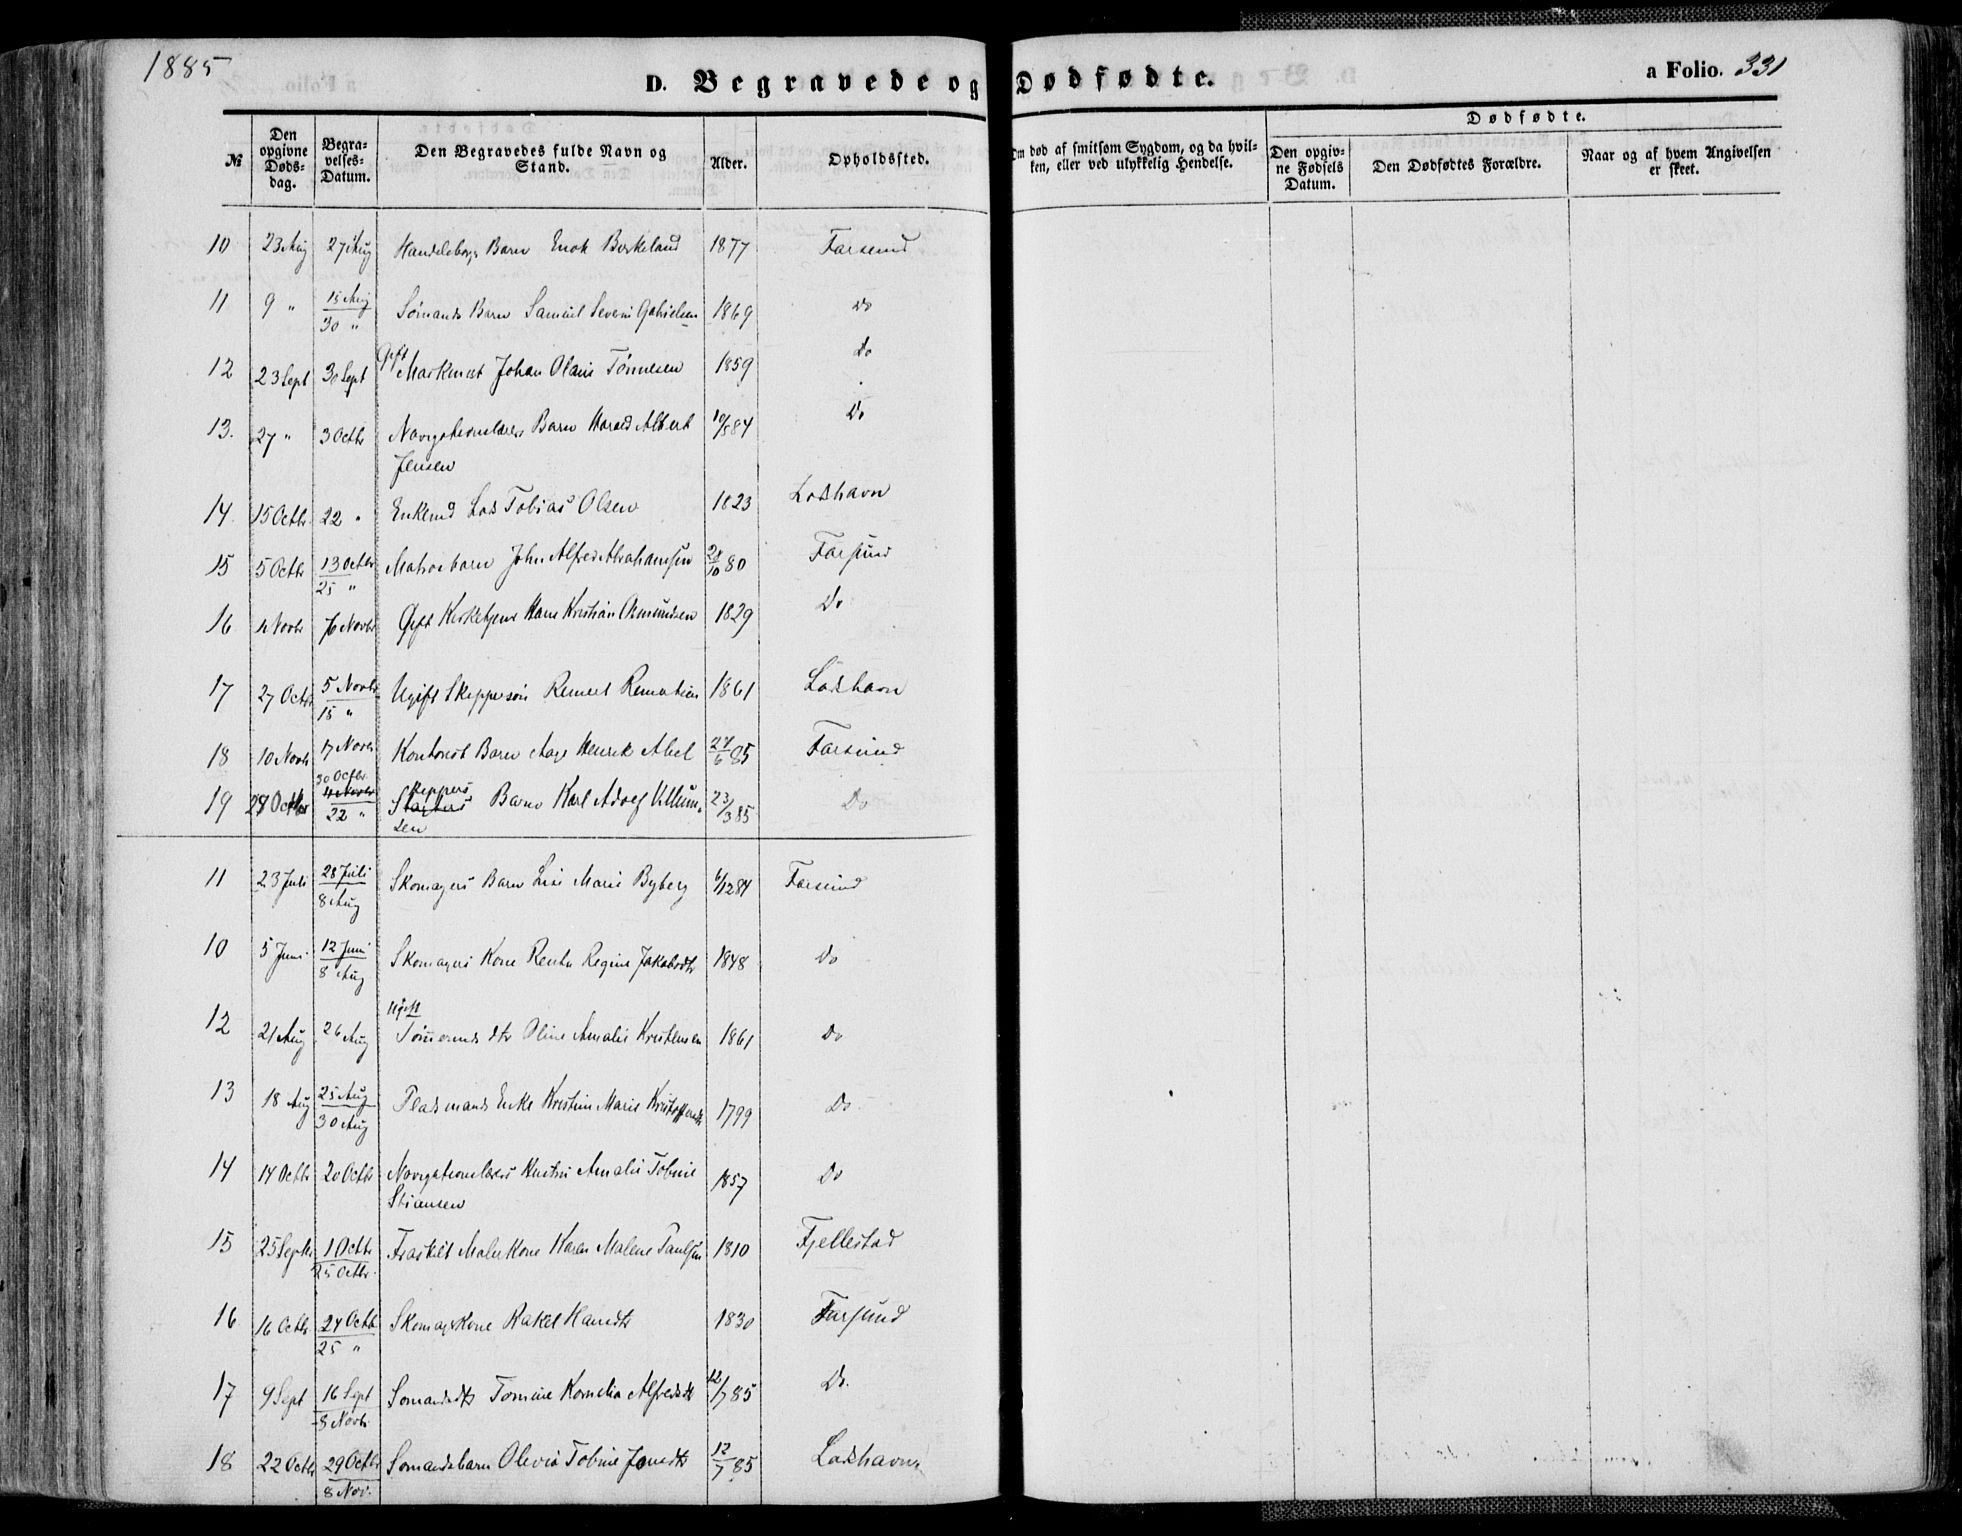 1885
D. Begravede og Dødfødte.
a Folio. 331
№
Den opgivne Døds-dag.
Begra-velses-Datum.
Den Begravedes fulde Navn og Stand.
Alder.
Opholdssted.
Om død af smitsom Sygdom, og da hvil-ken, eller ved ulykkelig Hendelse.
Dødfødte.
Den opgiv-ne Fødsels Datum.
Den Dødfødtes Forældre.
Naar og af hvem Angivelsen er skeet.
10 23 Aug 27 Aug Handelsborgs Barn Enok Birkeland 1877 Farsund
11 9 " 15 Aug / 30 " Sømands Barn Samuel Severin Gabrielsen 1869 Do
12 23 Sept 30 Sept Gift Johan Olaus Tønnesen 1859 Do
13. 27 " 3 Octbr Navigationslærers Barn Harald Albert 10/5 84 Do
Jensen
14 15 Octbr. 22 " Enkemd Lods Tobias Olsen 1823 Loshavn
15 5 Octbr 13 Octbr / 25 " Matrosbarn John Alfred Abrahamsen 28/10 80 Farsund
16 4 Novbr 76 Novbr Gift Kirketjener Hans Kristian Osmundsen 1829 Do
17 27 Octbr 5 Novbr / 15 " Ugift Skippersøn Reinert 1861 Loshavn
18 10 Novbr 17 Novbr Kontorist Barn Aage Henrik Abel 27/6 85 Farsund
19 27 Octbr 30 Octbr. 4 Novbr / 22 " Skippers Barn Karl Adolf Ellum-
sen 23/3 85 Do
11 23 Juli 28 Juli / 8 Aug Skomagers Barn Lise Marie Byberg 6/12 84 Farsund
10 5 Juni 12 Juni / 8 Aug Skomagers Kone Regine Jakobsdtr 1848 Do
12 21 Aug 26 Aug Ugift Tømmermds dtr Oline Amalie Kristensen 1861 Do
13 18 Aug 25 Aug / 30 Aug Pladsmands Enke Kristine Marie Kristoffersdtr 1799 Do
14 14 Octbr 20 Octbr Navigationslærers Hustru Amalie Tobine 1857 Do
Stiansen
15 25 Septbr 1 Octbr / 25 Octbr. Fraskilt Malerkone Karen Malene Paulsen 1810 Fjellestad
16 16 Octbr 24 Octb / 25 " Skomagerkone Rakel Hansdtr 1830 Farsund
17 9 Sept 16 Sept / 8 Novbr Sømandsdtr Tomine Kornelia Alfredsdtr 12/7 85 Do.
18 22 Octbr 29 Octbr / 8 Nov. Sømandsbarn Olevia Tobine Jonsdtr 12/7 85 Loshavn